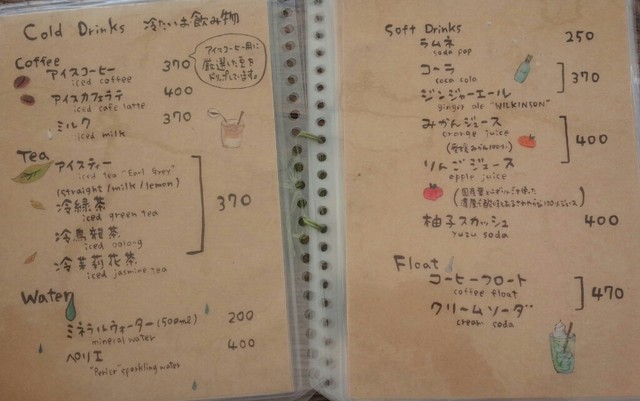 Cold Drinks 冷たいお飲み物
Coffee
アイスコーヒー 370
iced coffee
アイスコーヒー用に
厳選した豆を
ドリップしています。
アイスカフェラテ 400
iced cafe latte
ミルク 370
iced milk
Tea
アイスティー
iced tea "Earl Grey"
(straight/milk/lemon)
冷緑茶
iced green tea
370
冷烏龍茶
iced oolong
冷茉莉花茶
iced jasmine tea
Water
ミネラルウォーター(500ml) 200
mineral water
ペリエ 400
"Perier" sparkling water
Soft Drinks
ラムネ 250
soda pop
コーラ
coca cola
370
ジンジャーエール
ginger ale "WILKINSON"
みかんジュース
orange juice
400
りんごジュース
apple juice
柚子スカッシュ 400
yuzu soda
Float
コーヒーフロート
coffee float
470
クリームソーダ
cream soda